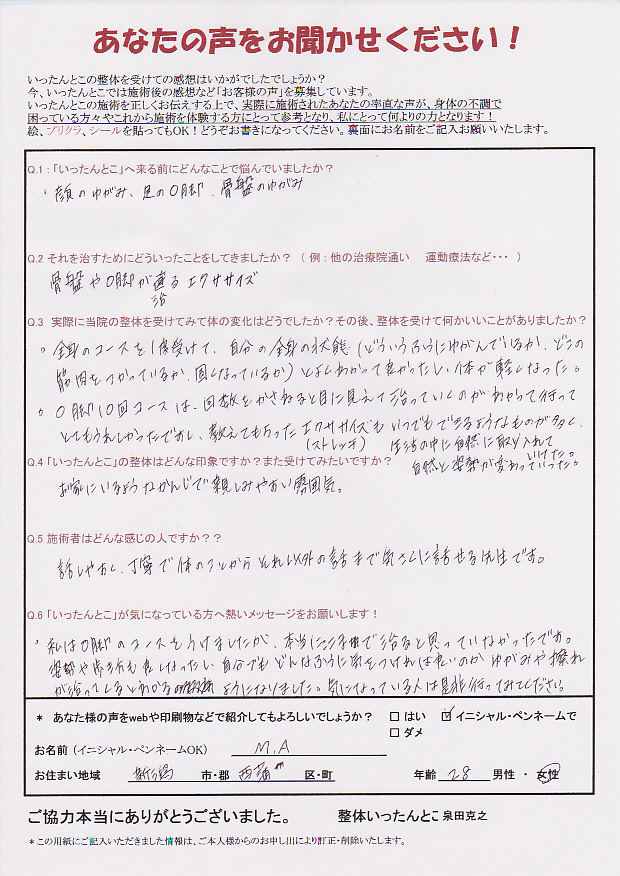 あなたの声をお聞かせください！
いったんとこの整体を受けての感想はいかがでしたでしょうか？
今、いったんとこでは施術後の感想など「お客様の声」を募集しています。
いったんとこの施術を正しくお伝えする上で、実際に施術されたあなたの率直な声が、身体の不調で
困っている方々やこれから施術を体験する方にとって参考となり、私にとって何よりの力となります！
絵、プリクラ、シールを貼ってもOK！どうぞお書きになってください。裏面にお名前をご記入お願いいたします。
Q.1：「いったんとこ」へ来る前にどんなことで悩んでいましたか？
・顔のゆがみ、足のO脚、骨盤のゆがみ
Q.2 それを治すためにどういったことをしてきましたか？（例：他の治療院通い　運動療法など・・・）
骨盤やO脚が直るエクササイズ
治
Q.3 実際に当院の整体を受けてみて体の変化はどうでしたか？その後、整体を受けて何かいいことがありましたか？
。全身のコースを1度受けて、自分の全身の状態（どういうふうにゆがんでいるか、どこの
筋肉をつかっているか、固くなっているか）とよくわかって良かったし、体が軽くなった。
。O脚10回コースは、回数をかさねると目に見えて治っていくのがわかって行って
とてもうれしかったですし、教えてもらったエクササイズもいつでもできるようなものが多く、
（ストレッチ）生活の中に自然に取り入れて
いけた。
自然と姿勢が変わっていった。
Q.4「いったんとこ」の整体はどんな印象ですか？また受けてみたいですか？
お家にいるようなかんじで親しみやすい雰囲気。
Q.5 施術者はどんな感じの人ですか？？
話しやすく、丁寧で体のことからそれ以外の話まで気さくに話せる先生です。
Q.6「いったんとこ」が気になっている方へ熱いメッセージをお願いします！
・私はO脚のコースをうけましたが、本当にここまで治ると思っていなかったです。
姿勢や歩き方も良くなったし、自分でもどんなふうに気をつければ良いのかゆがみや擦れ
が治ってくるとわかるようになりました。気になっている人は是非行ってみてください
＊ あなた様の声をwebや印刷物などで紹介してもよろしいでしょうか？　□はい　☑イニシャル・ペンネームで
□ダメ
お名前（イニシャル・ペンネームOK）　M.A
お住まい地域　新潟　市・郡　西蒲　区・町　年齢 28 男性・女性
ご協力本当にありがとうございました。　整体いったんとこ 泉田克之
＊この用紙にご記入いただきました情報は、ご本人様からのお申し出により訂正・削除いたします。